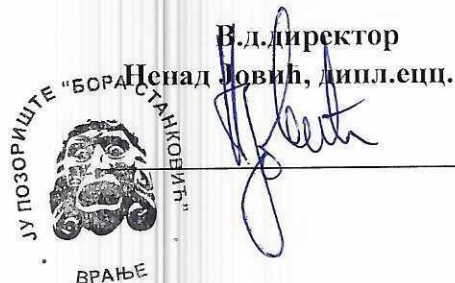 В.д.директор
Ненад Јовић, дипл.ецц.
ЈУ ПОЗОРИШТЕ "БОРА СТАНКОВИЋ"
ВРАЊЕ